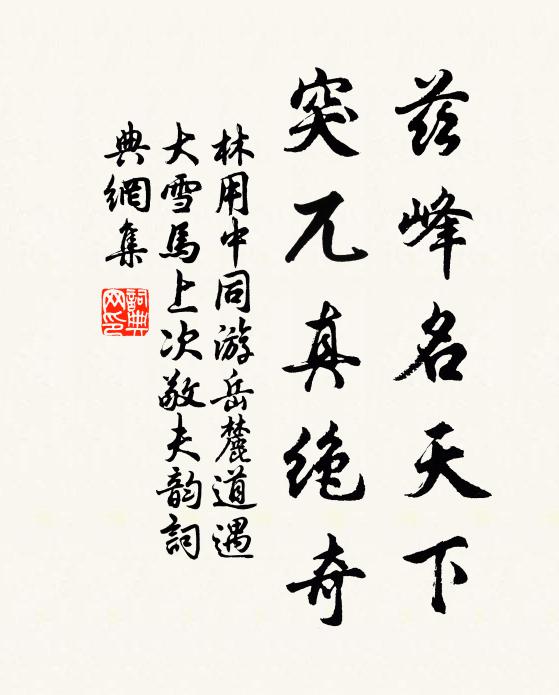 兹峰名天下
突兀真绝奇
林用中同游岳麓道遇
大雪馬上次敬夫韵詞
典網集
詞典
网印